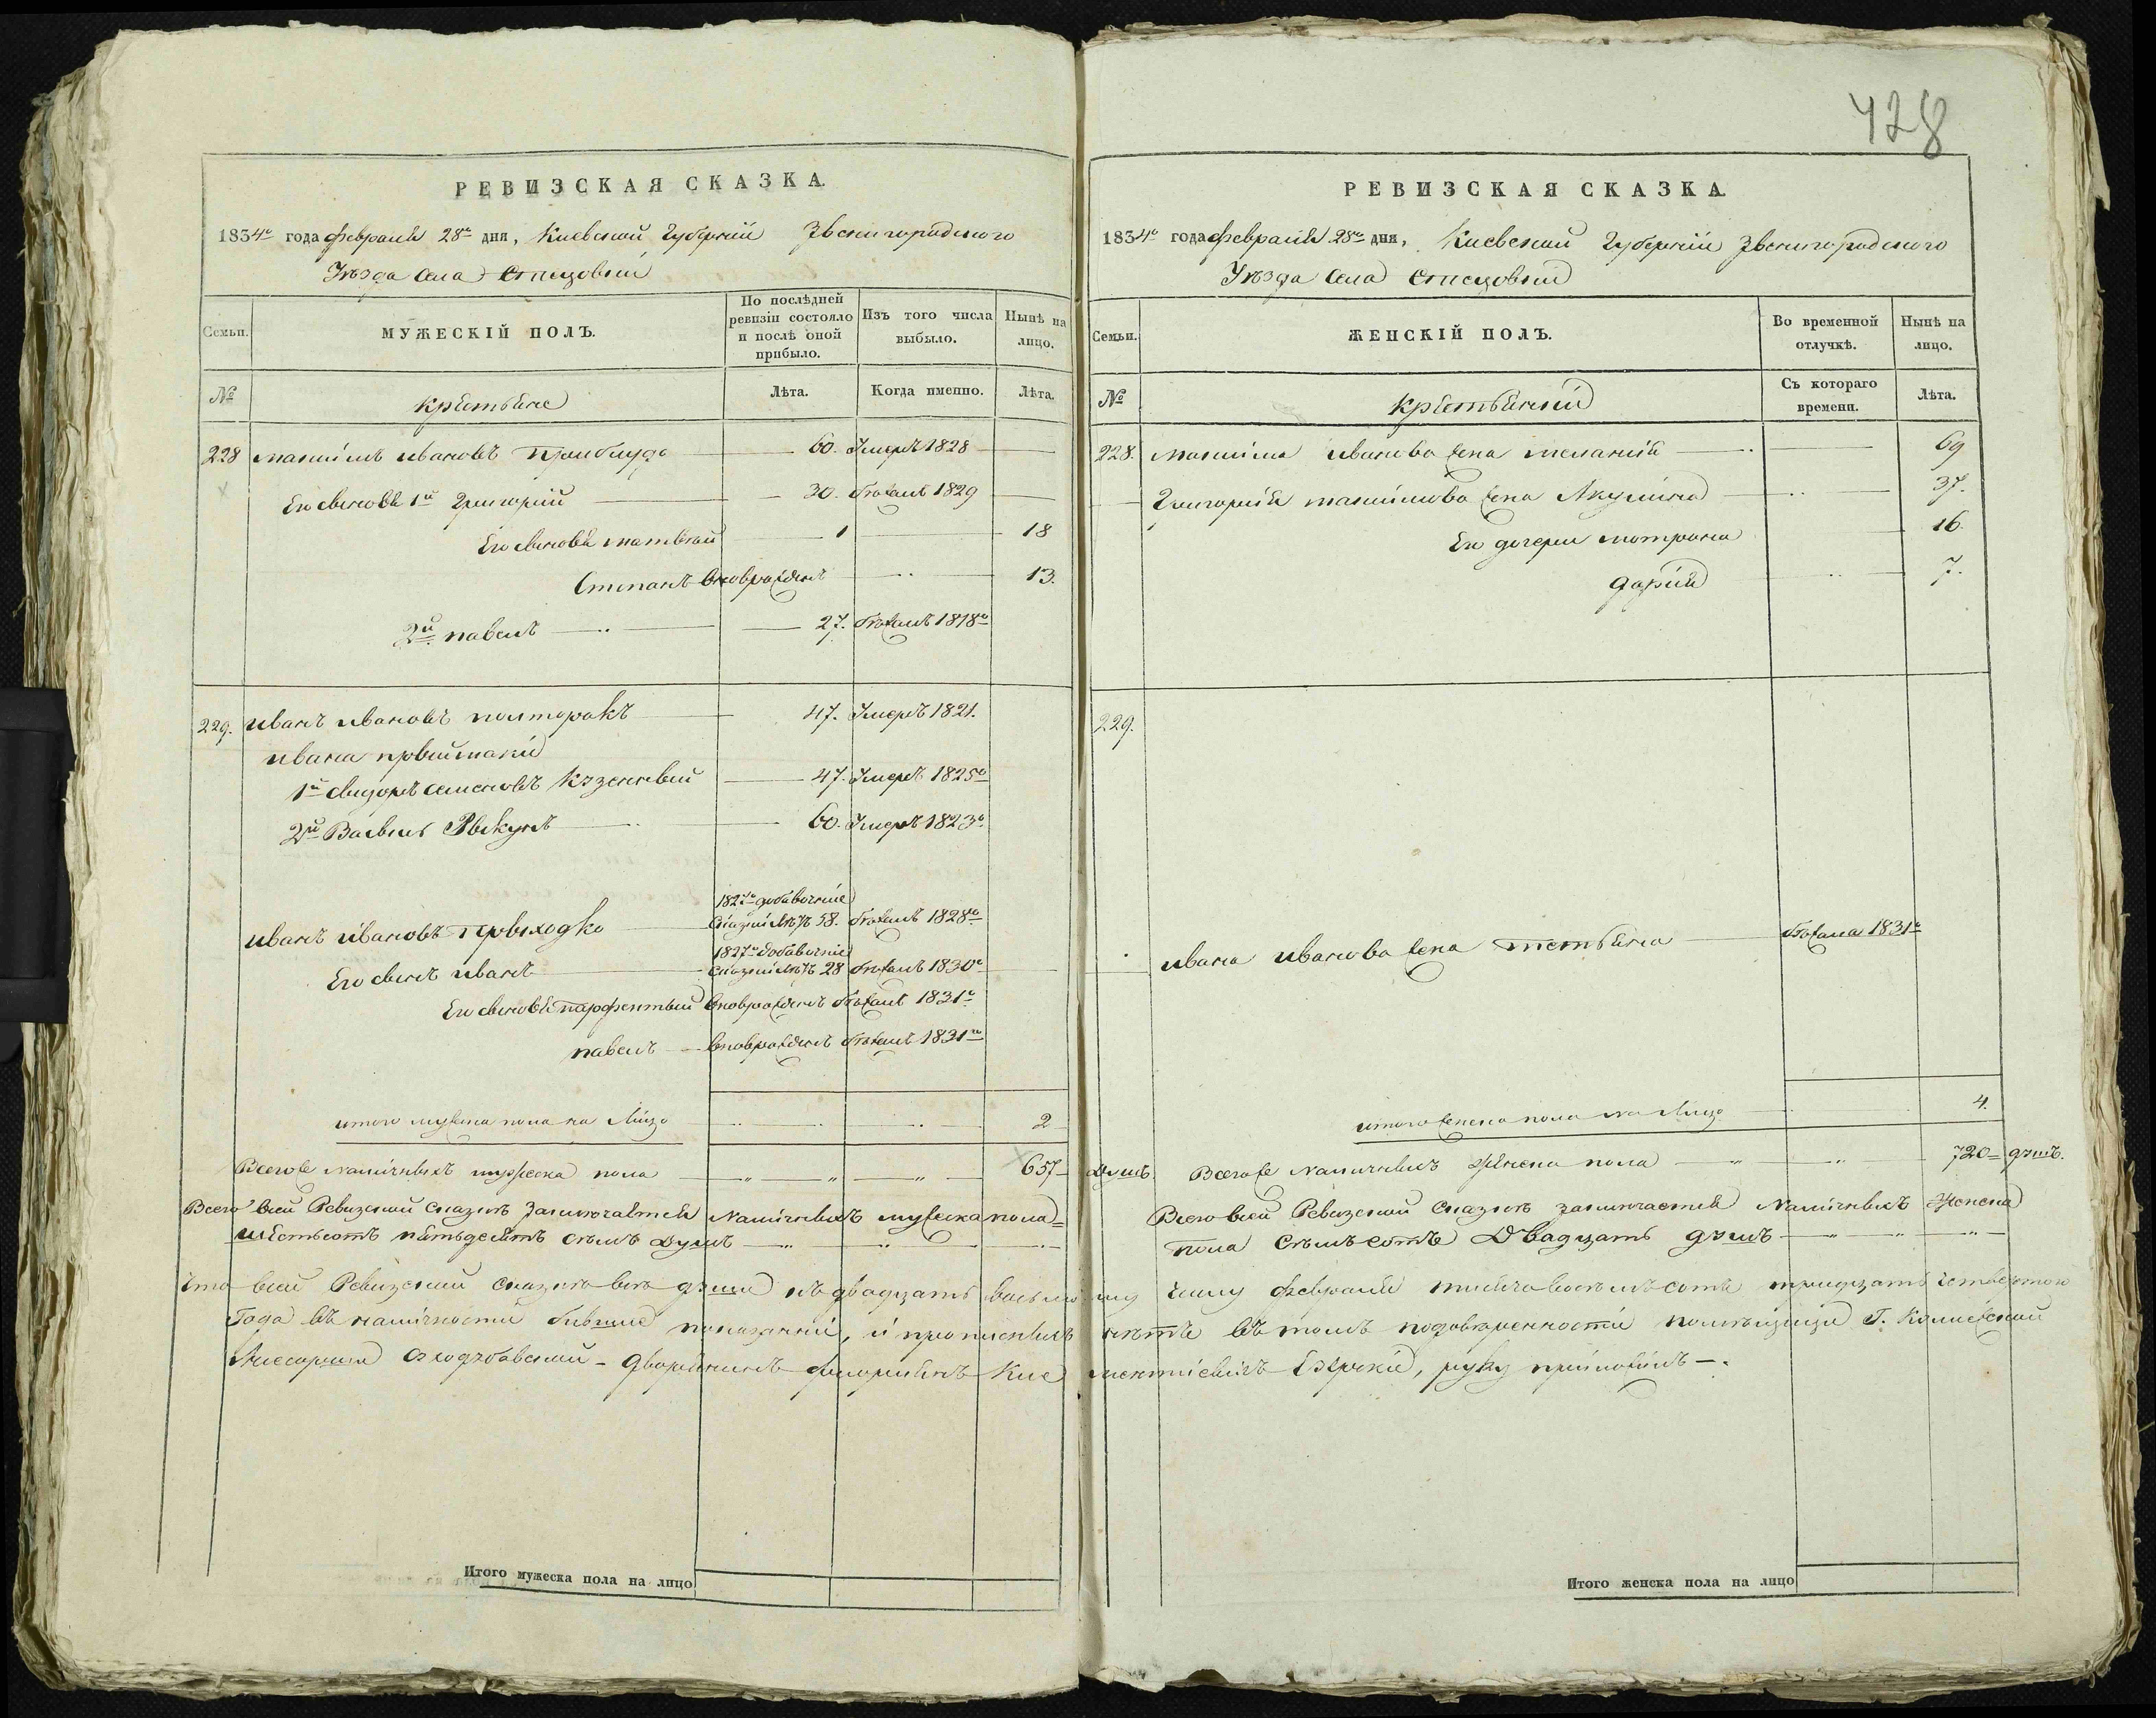 428
РЕВИЗСКАЯ СКАЗКА.
1834го года февраля 28го дня, Киевской губернии Звенигородского
Уѣзда села
Семьи.
МУЖЕСКІЙ ПОЛЪ.
По послѣдней ревизіи состояло и послѣ оной прибыло.
Изъ того числа выбыло.
Нынѣ на лицо.
№
крестьяне
Лѣта.
Когда именно.
Лѣта.
228 максимъ ивановъ приблуда 60. Умеръ 1828
Его сыновья 1й Григорий 30. бѣжалъ 1829
Его сыновья матвѣй 1 18
Степанъ вновьрожденъ 13.
2й павелъ 27. бѣжалъ 1818го
229. иванъ ивановъ полторакъ 47. Умеръ 1821.
ивана прыймаки
1й сыдоръ семеновъ 47. Умеръ 1825го
2й Василь 60. Умеръ 1823го
1827го добавочніе
иванъ ивановъ прыходко 58. бѣжалъ 1828го
1827го добавочніе
Его сынъ иванъ 28 бѣжалъ 1830го
Его сыновья парфентый вновьрожденъ бѣжалъ 1831го
павелъ вновьрожденъ бѣжалъ 1831го
итого мужеска пола на лицо 2
Всегоже наличныхъ мужеска пола 657 душъ.
Всего въ сей Ревизской сказкѣ заключается наличныхъ мужеска пола
шестьсотъ пятьдесятъ семъ душъ
Итого мужеска пола на лицо
РЕВИЗСКАЯ СКАЗКА.
1834го года февраля 28го дня, Киевской губернии Звенигородского
Уѣзда села
Семьи.
ЖЕНСКІЙ ПОЛЪ.
Во временной отлучкѣ.
Нынѣ на лицо.
№
крестьянки
Съ котораго времени.
Лѣта.
228. максима иванова жена мелания 69
Григория максимова жена Акулина 37.
Его дочери мотрона 16.
дария 7.
229.
ивана иванова жена бѣжала 1831го
итого женска пола на лицо 4.
Всегоже наличныхъ женска пола 720 душъ.
Всего въ сей Ревизской сказкѣ заключается наличныхъ женска
пола семъ сотъ двадцать душъ
Что въ сей Ревизской сказкѣ всѣ души къ двадцать восьмому числу февраля тысяча восемъ сотъ тридцать четвертого
Года въ наличности бывшие показанни, и прописныхъ нѣтъ въ томъ по довѣренности помѣщици Г.
дворянинъ флориянъ руку приложилъ
Итого женска пола на лицо